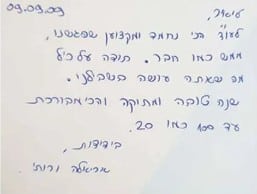 09.09.09
לעו"ד הכי נחמד ומקצוען שפגשנו,
ממש כמו חבר. תודה על כל
מה שאתה עושה בשבילנו.
שנה טובה ומתוקה והכי מבורכת
עד 100 כמו 20.
בידידות,
אריאלה ורותי